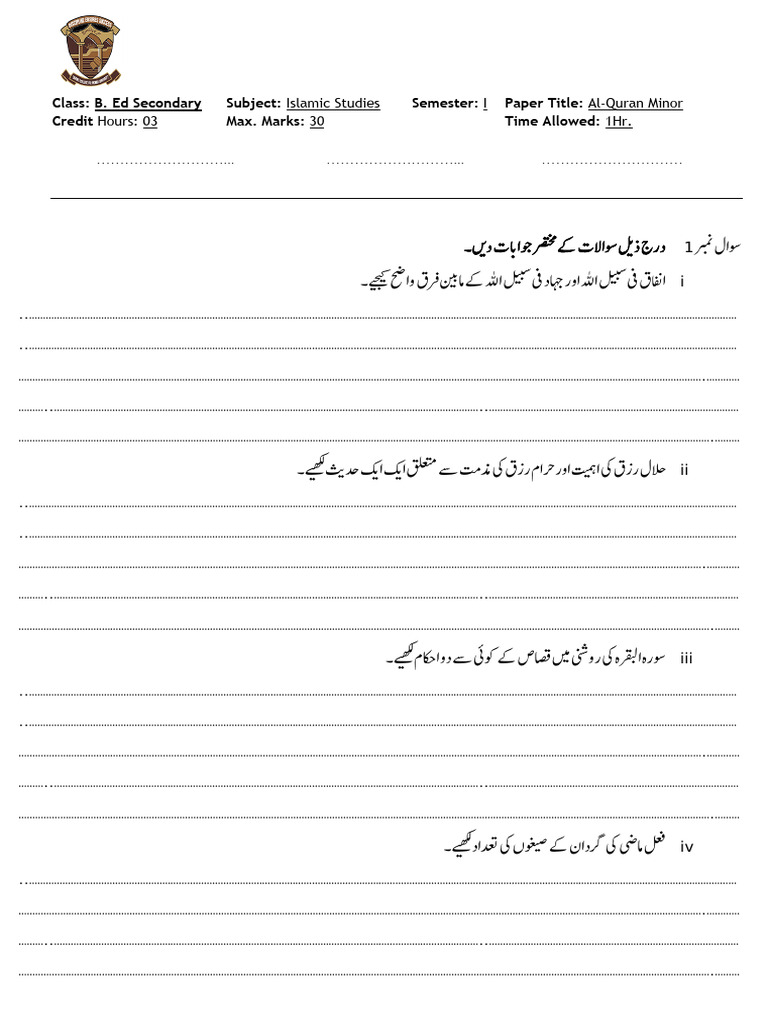 Class: B. Ed Secondary Subject: Islamic Studies Semester: I Paper Title: Al-Quran Minor
Credit Hours: 03 Max. Marks: 30 Time Allowed: 1Hr.
سوال نمبر 1 درج ذیل سوالات کے مختصر جوابات دیں۔
i انفاق فی سبیل اللہ اور جہاد فی سبیل اللہ کے مابین فرق واضح کیجیے۔
ii حلال رزق کی اہمیت اور حرام رزق کی مذمت سے متعلق ایک ایک حدیث لکھیے۔
iii سورہ البقرہ کی روشنی میں قصاص کے کوئی سے دو احکام لکھیے۔
iv فعل ماضی کی گردان کے صیغوں کی تعداد لکھیے۔